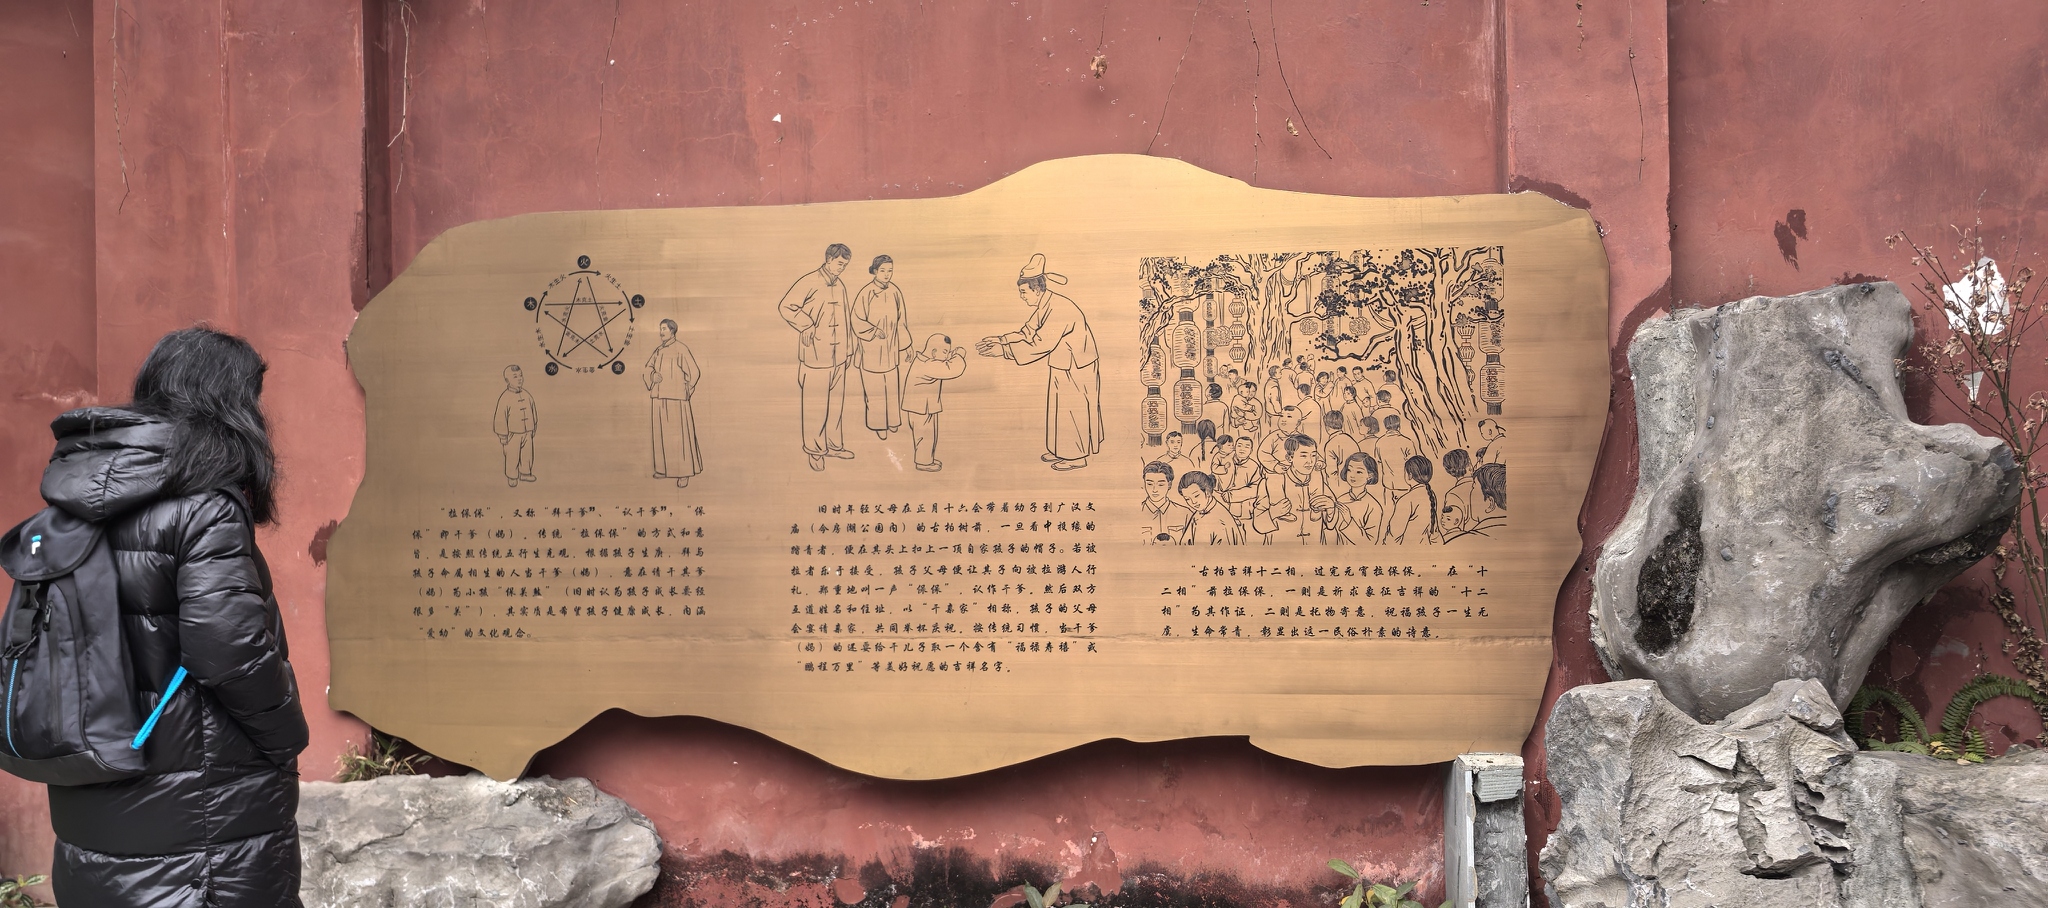 火
木生火
火生土
木
土
水
金
金生水
"拉保保"，又称"拜干爹"，"认干爹"，"保
保"即干爹（妈）。传统"拉保保"的方式和意
旨，是按照传统五行生克观，根据孩子生庚，拜与
孩子命属相生的人当干爹（妈），意在请干其爹
（妈）为小孩"保关煞"（旧时认为孩子成长要经
很多"关"），其实质是希望孩子健康成长，内涵
"爱幼"的文化观念。
旧时年轻父母在正月十六会带着幼子到广汉文
庙（今房湖公园内）的古柏树前，一旦看中投缘的
踏青者，便在其头上扣上一顶自家孩子的帽子。若被
拉者乐于接受，孩子父母便让其子向被拉游人行
礼，郑重地叫一声"保保"，认作干爹。然后双方
互道姓名和住址，以"干亲家"相称，孩子的父母
会宴请亲家，共同举杯庆祝。按传统习惯，当干爹
（妈）的还要给干儿子取一个含有"福禄寿禧"或
"鹏程万里"等美好祝愿的吉祥名字。
"古柏吉祥十二相，过完元宵拉保保。"在"十
二相"前拉保保，一则是祈求象征吉祥的"十二
相"为其作证，二则是托物寄意，祝福孩子一生无
虞，生命常青，彰显出这一民俗朴素的诗意。